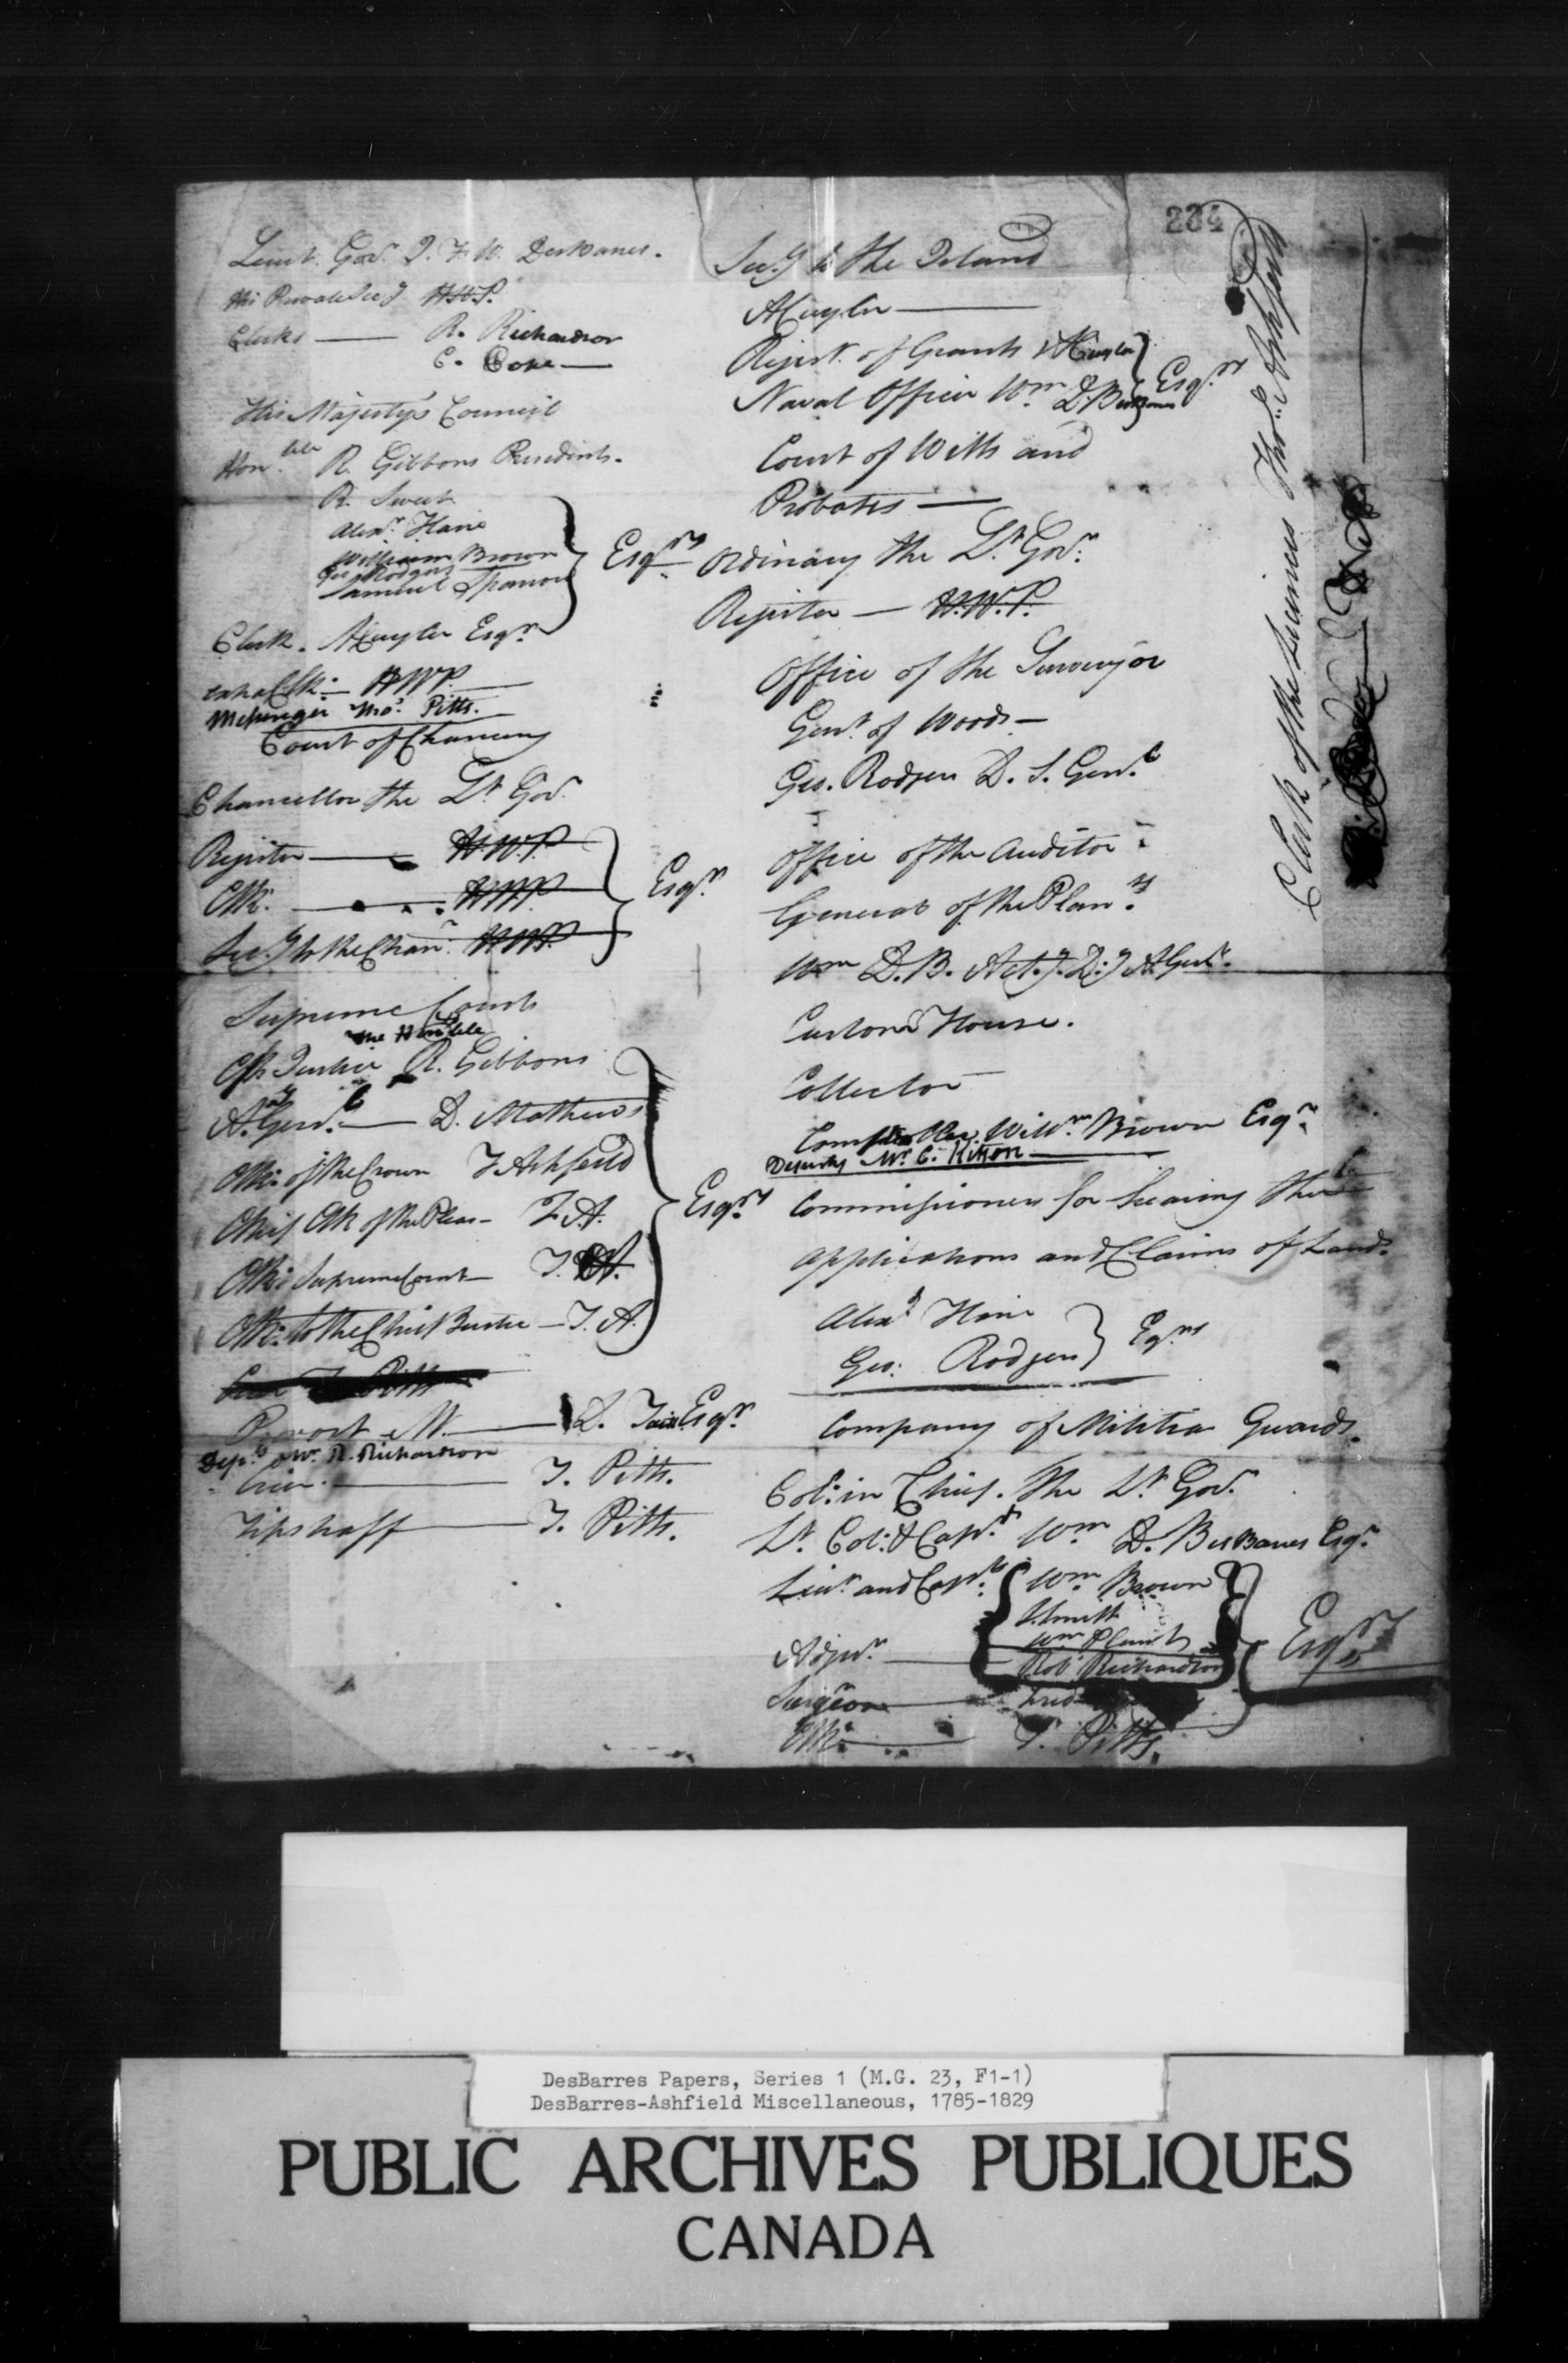 234
Lieut. Govr. J. F. W. DesBarres.
His Private Secy H.W.P.
Clerks — R. Richardson
C. Cope —
His Majesty's Council
Honble R. Gibbons President.
R. Sweet
Alexr. Haire
William Brown
Geo Rodgers
Samuel Sparrow
Esqrs
Clerk. A Cuyler Esqr.
extra Clk: — HWP. —
Messenger Thos. Pitts.
Court of Chancery
Chancellor the Lt Govr.
Register — H.W.P.
Clk: — HWP
Secy to the Chanr. HWP.
Esqr.
Supreme Court
The Honble
Ch Justice R. Gibbons
Ay. Genl. — D. Mathews
Clk: of the Crown T Ashfeild
Chief Clk of the Pleas — T.A.
Clk: Supreme Court — T. A.
Clk: to the Chief Justice — T. A.
Esqrs
Pitts
Provost M. — D. Tait Esqr.
Depy. Mr. R. Richardson
Crier. — T. Pitts.
Tipstaff — T. Pitts.
Secy to the Island
A Cuyler —
Regisr. of Grants A Cuyler
Naval Officer Wm D. BesBarres
Esqrs
Court of Wills and
Probates —
Ordinary the Lt. Govr.
Register — H.W.P.
Office of the Surveyor
Genl. of Woods —
Geo. Rodgers D. S. Genl.
Office of the Auditor
General of the Plans.
Wm D.B. Actg. Dy A Genl.
Customs House.
Collector —
Comptroller Willm. Brown Esqr.
Deputy Mr. C. Kitson —
Commissioners for hearing the
applications and Claims of Lands.
Alexr Haire
Geo. Rodgers
Esqrs
Company of Militia Guards.
Col: in Chief. The Lt Govr.
Lt. Col: & Capt. Wm D. BesBarres Esqr.
Lieut and Capt. Wm Brown
Smith
Wm
Adjut. — Robt Richardson
Surgeon — Fred
Clk: — T. Pitts.
Esqrs
Clerk of the Licences Thos. Ashfeild
DesBarres Papers, Series 1 (M.G. 23, F1-1)
DesBarres-Ashfield Miscellaneous, 1785-1829
PUBLIC ARCHIVES PUBLIQUES
CANADA